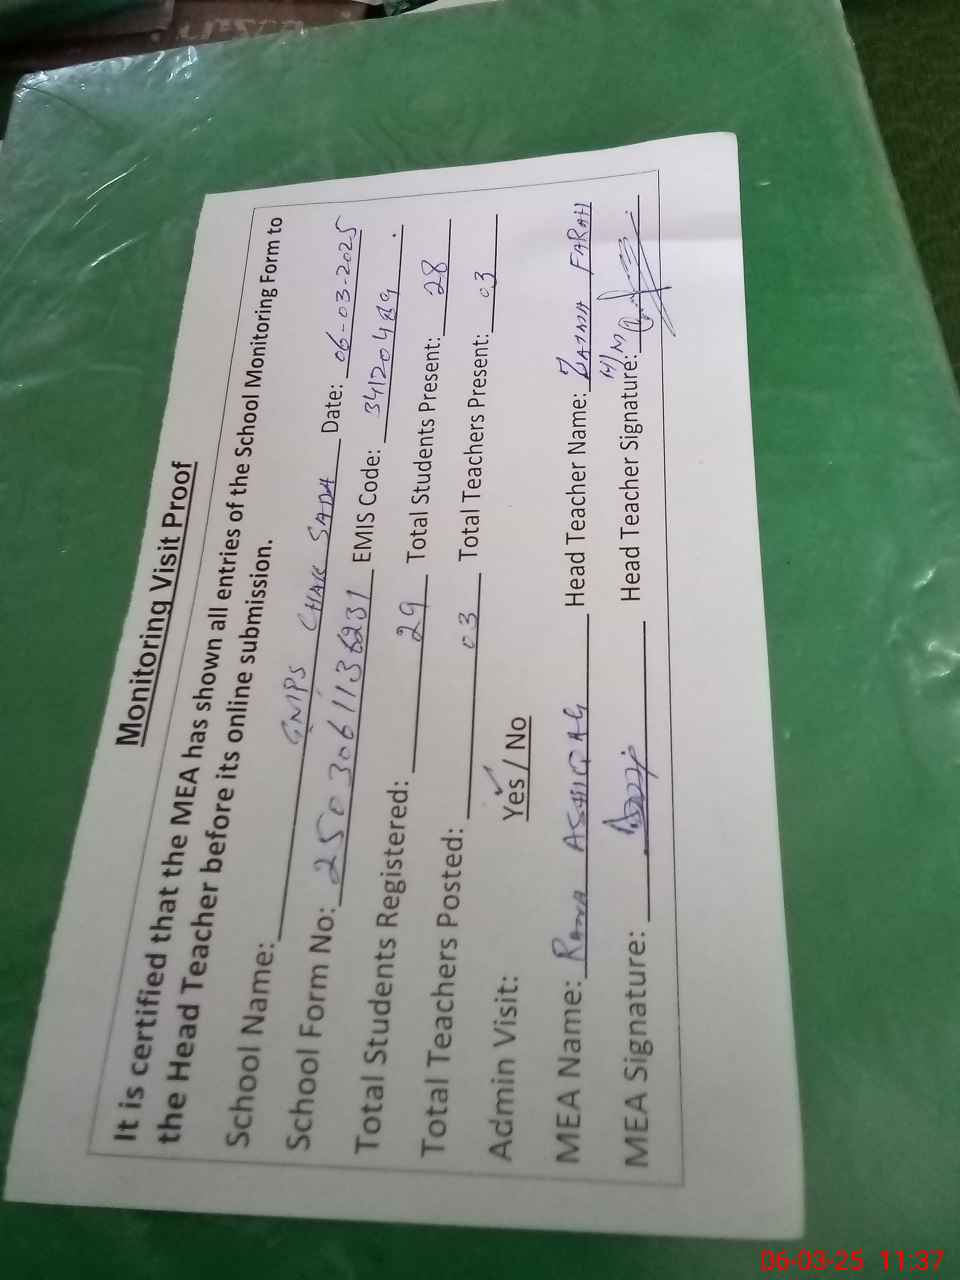 Monitoring Visit Proof
It is certified that the MEA has shown all entries of the School Monitoring Form to
the Head Teacher before its online submission.
School Name: GMPS CHAK SADA Date: 06-03-2025
School Form No: 2503061136231 EMIS Code: 34120489
Total Students Registered: 29 Total Students Present: 28
Total Teachers Posted: 03 Total Teachers Present: 03
Admin Visit: Yes / No
MEA Name: RANA ASHIQ ALI Head Teacher Name: ZAINA FARAH
MEA Signature: Head Teacher Signature: H/M
06-03-25 11:37